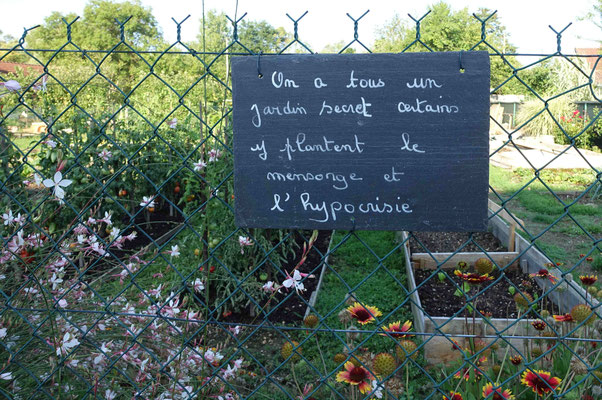 On a tous un
jardin secret certains
y plantent le
mensonge et
l'hypocrisie